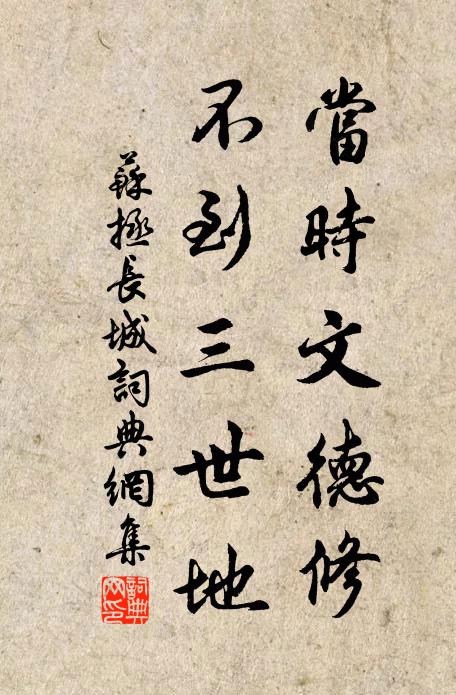 當時文德修
不到三世地
蘇拯長城詞典網集
詞典
網印